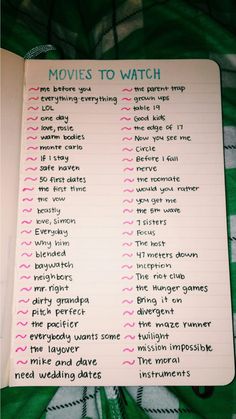 MOVIES TO WATCH
~me before you
~everything everything
~LOL
~one day
~love, rosie
~warm bodies
~monte carlo
~If I stay
~safe haven
~50 first dates
~the first time
~the vow
~beastly
~love, simon
~Everyday
~Why him
~blended
~baywatch
~neighbors
~mr. right
~dirty grandpa
~pitch perfect
~the pacifier
~everybody wants some
~the layover
~mike and dave
need wedding dates
~the parent trap
~grown ups
~table 19
~Good kids
~the edge of 17
~Now you see me
~Circle
~Before I fall
~nerve
~the roomate
~would you rather
~you get me
~the 5th wave
~7 sisters
~Focus
~The host
~47 meters down
~Inception
~The riot club
~the hunger games
~Bring it on
~divergent
~the maze runner
~twilight
~mission impossible
~The moral
instruments